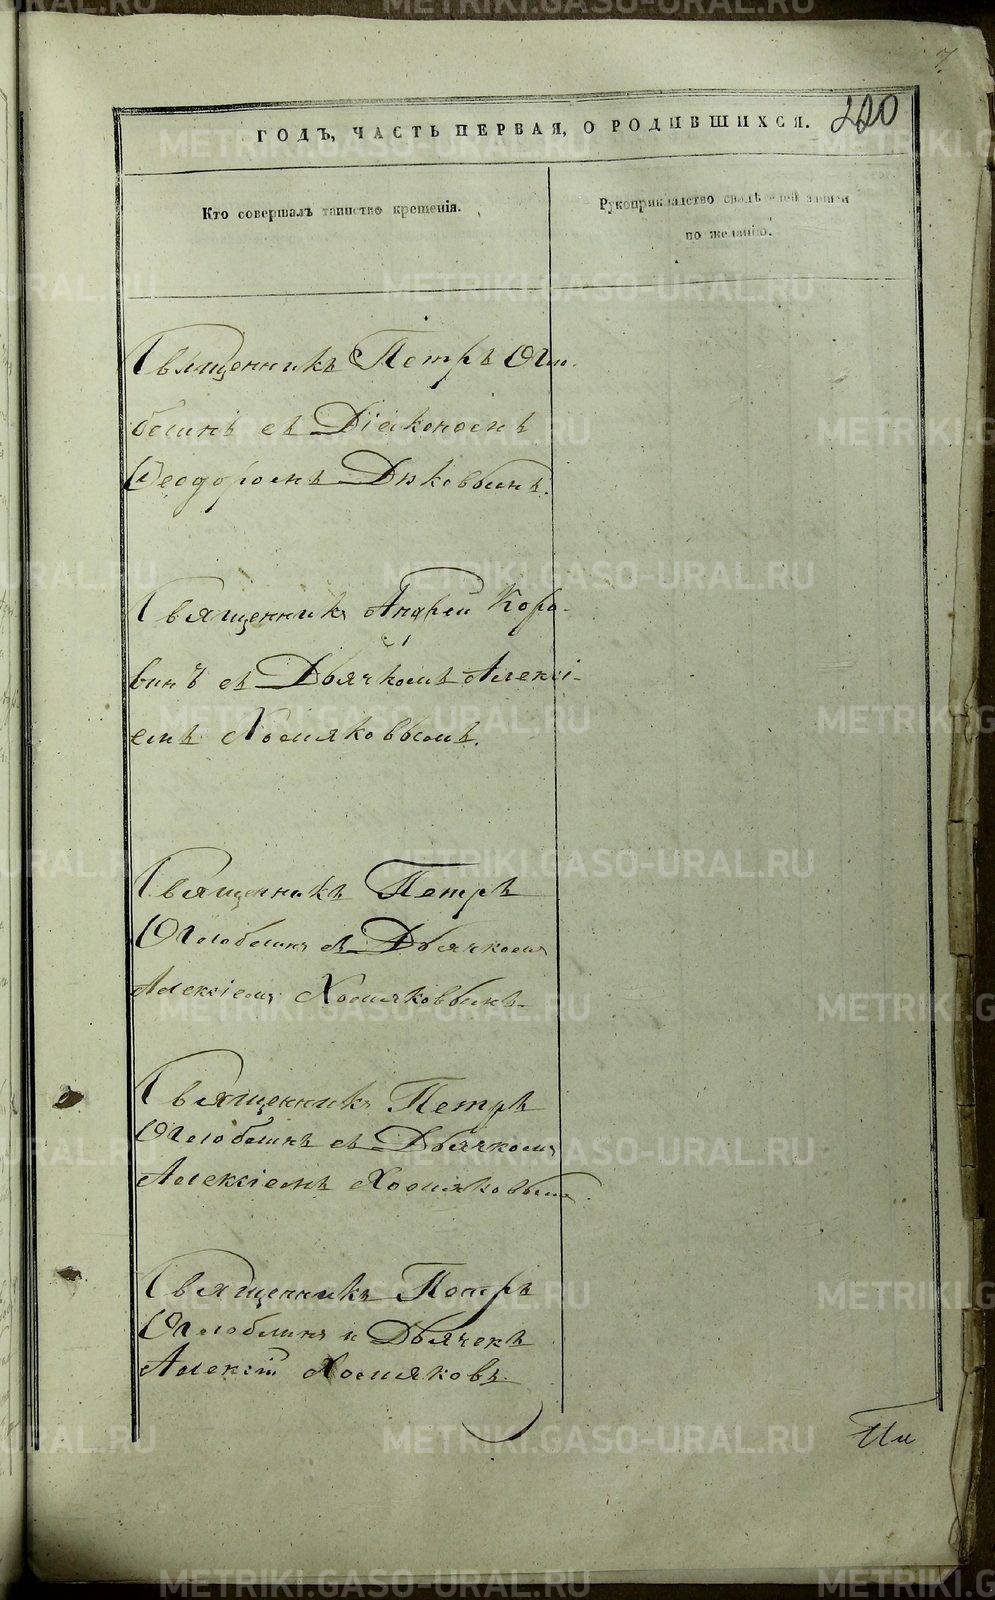 7
220
ГОДЪ, ЧАСТЬ ПЕРВАЯ, О РОДИВШИХСЯ.
Кто совершалъ таинство крещенія.
Рукоприкладство свидѣтелей записи
по желанію.
Священникъ Петръ Огло-
блинъ съ Діакономъ
Ѳеодоромъ Дюковымъ.
Священникъ Андрей Коро-
винъ съ Дьячкомъ Алексі-
емъ Хомяковымъ.
Священникъ Петръ
Оглоблинъ съ Дьячкомъ
Алексіемъ Хомяковымъ.
Священникъ Петръ
Оглоблинъ съ Дьячкомъ
Алексіемъ Хомяковымъ.
Священникъ Петръ
Оглоблинъ и Дьячекъ
Алексій Хомяковъ.
METRIKI.GASO-URAL.RU